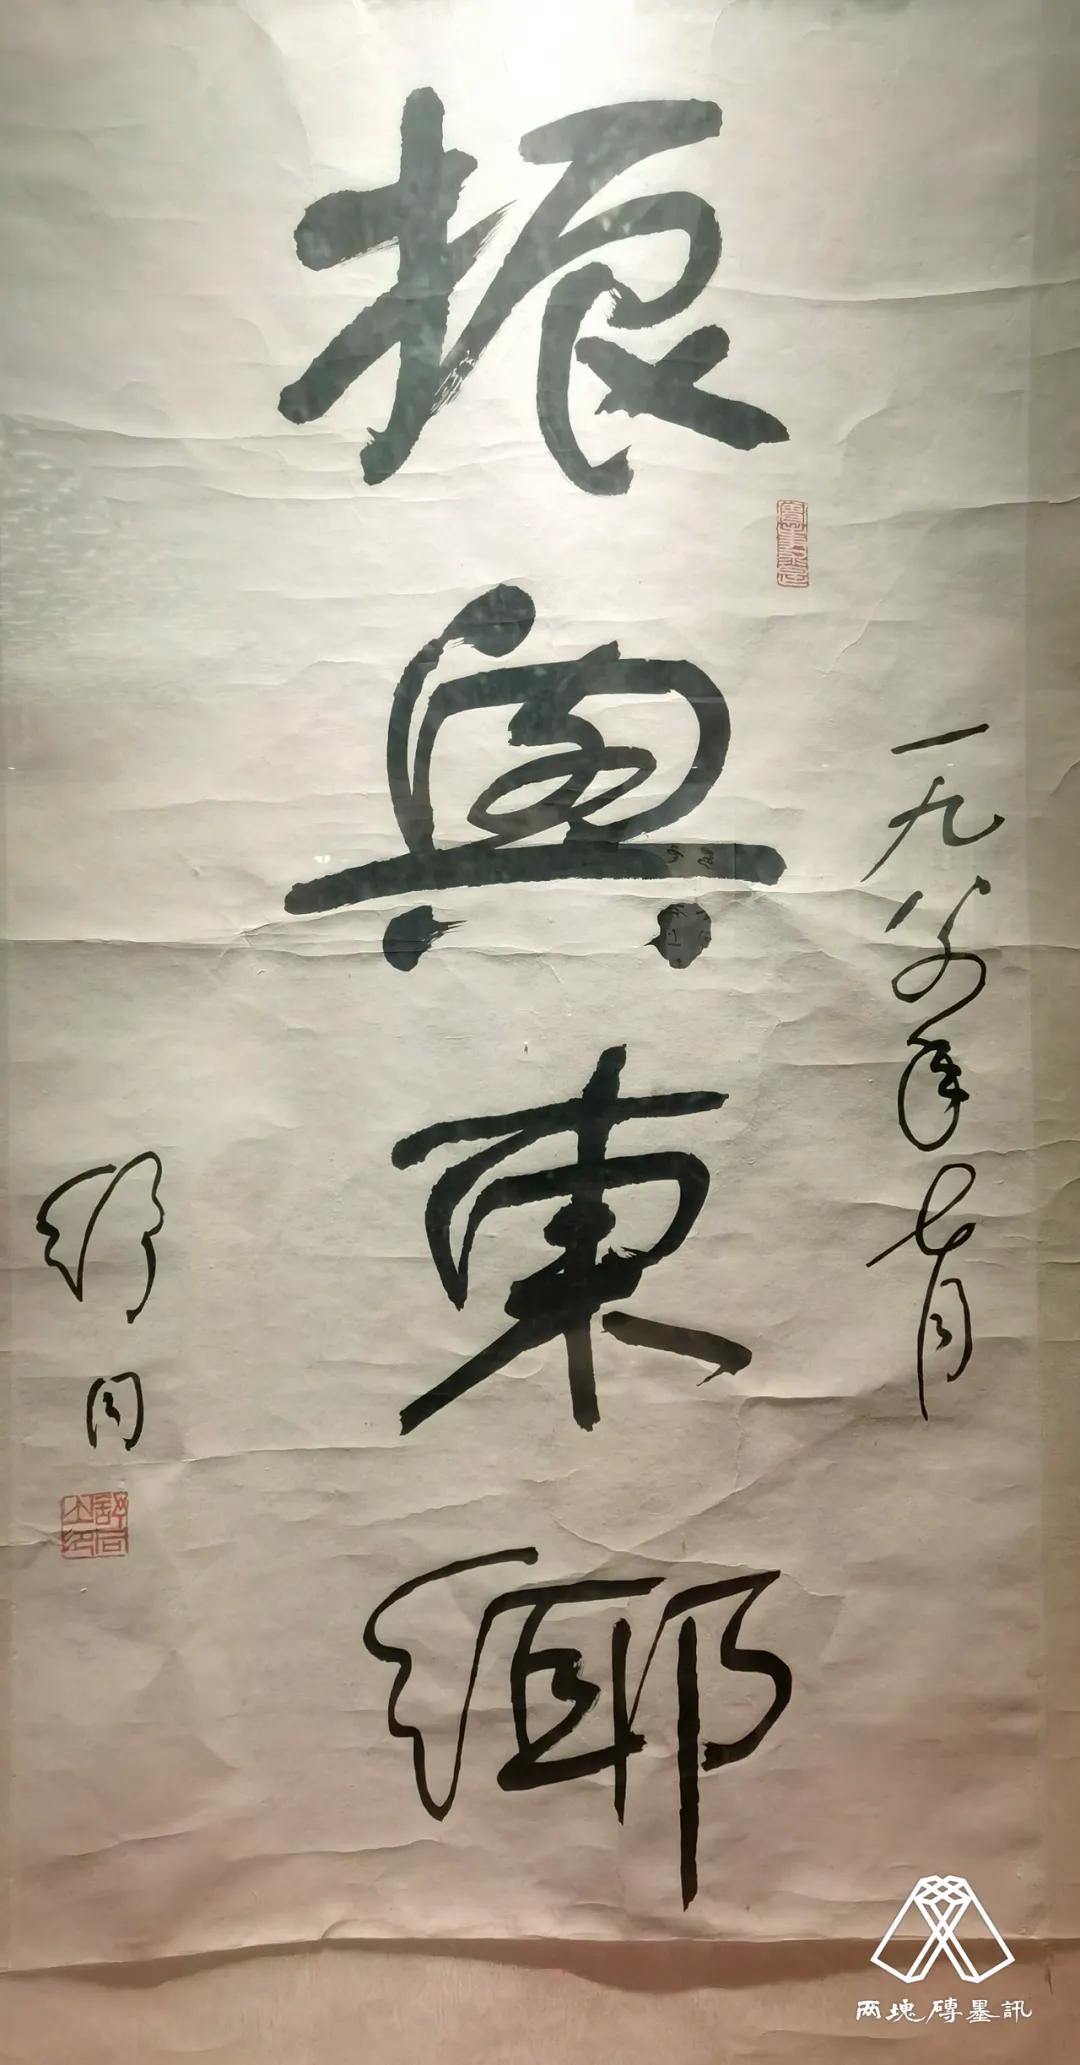 一九八年七月
振興東鄉
舒同
舒同之印
两塊磚墨訊